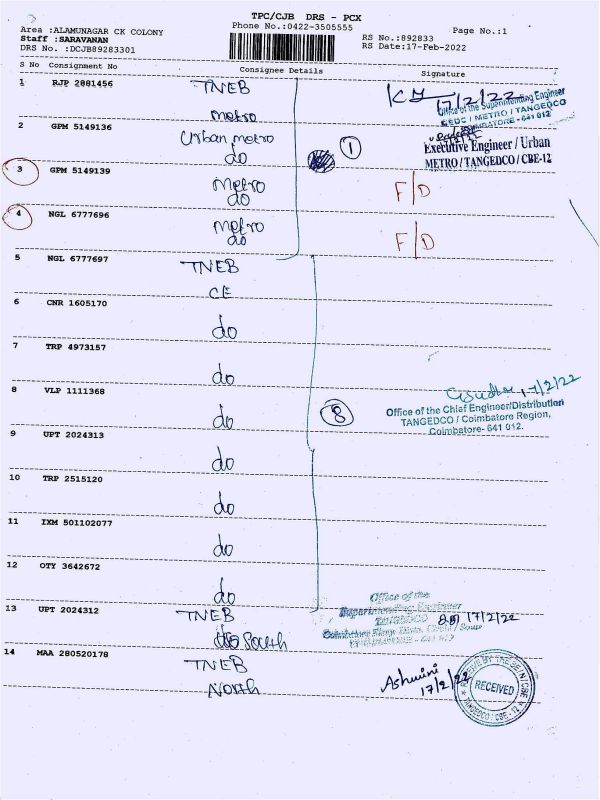 TPC/CJB DRS - PCX
Phone No.:0422-3505555
Area :ALAMUNAGAR CK COLONY
Staff :SARAVANAN
DRS No. :DCJB89283301
RS No.:892833
RS Date:17-Feb-2022
Page No.:1
S No Consignment No Consignee Details Signature
1 RJP 2881456 TNEB
Metro
17/2/22
Office of the Superintending Engineer
GEDC / METRO / TANGEDCO
COIMBATORE - 641 012
2 GPM 5149136 Urban metro
do
1
Executive Engineer / Urban
METRO / TANGEDCO / CBE-12
3 GPM 5149139 Metro
do
F/D
4 NGL 6777696 Metro
do
F/D
5 NGL 6777697 TNEB
CE
6 CNR 1605170 do
7 TRP 4973157 do
8 VLP 1111368 do
8
17/2/22
Office of the Chief Engineer/Distribution
TANGEDCO / Coimbatore Region,
Coimbatore- 641 012.
9 UPT 2024313 do
10 TRP 2515120 do
11 IXM 501102077 do
12 OTY 3642672 do
13 UPT 2024312 TNEB
South
Office of the
Superintending Engineer
TANGEDCO
17/2/22
14 MAA 280520178 TNEB
North
Ashwini
17/2/22
RECEIVED
TANGEDCO / CBE - 12